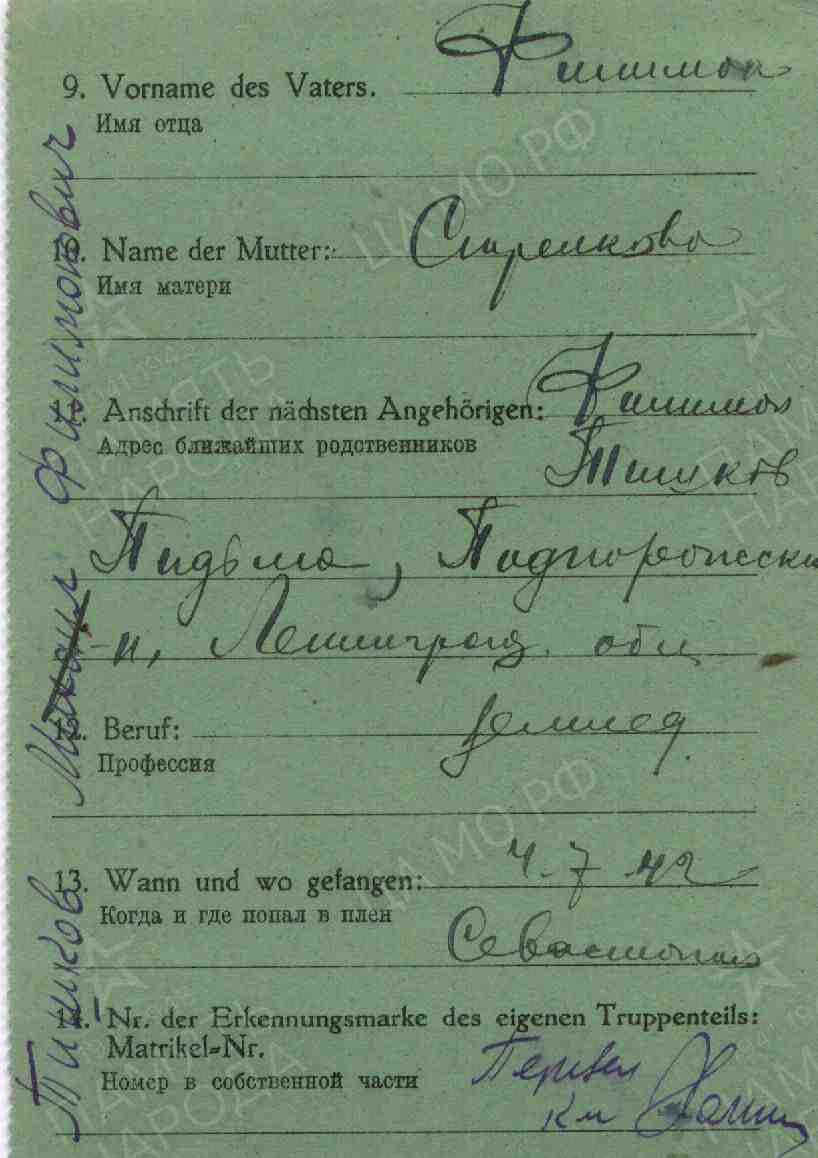 9. Vorname des Vaters. Филимон
Имя отца
10. Name der Mutter: Стрелкова
Имя матери
11. Anschrift der nächsten Angehörigen: Филимон
Адрес ближайших родственников Тишков
Пидьма, Подпорожски
-н, Ленинград. обл
12. Beruf: землед.
Профессия
13. Wann und wo gefangen: 4-7 42
Когда и где попал в плен
Севастополь
14. Nr. der Erkennungsmarke des eigenen Truppenteils:
Matrikel-Nr.
Номер в собственной части Перевел
Тишков Михаил Филимонович
ЦА МО РФ
ПАМЯТЬ
НАРОДА
1941 1945
ЦА МО РФ